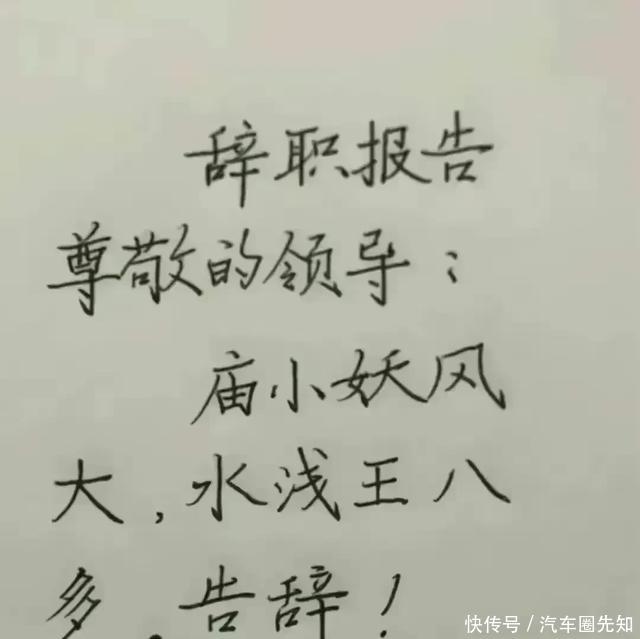 辞职报告
尊敬的领导：
庙小妖风
大，水浅王八
多，告辞！
快传号／汽车圈先知